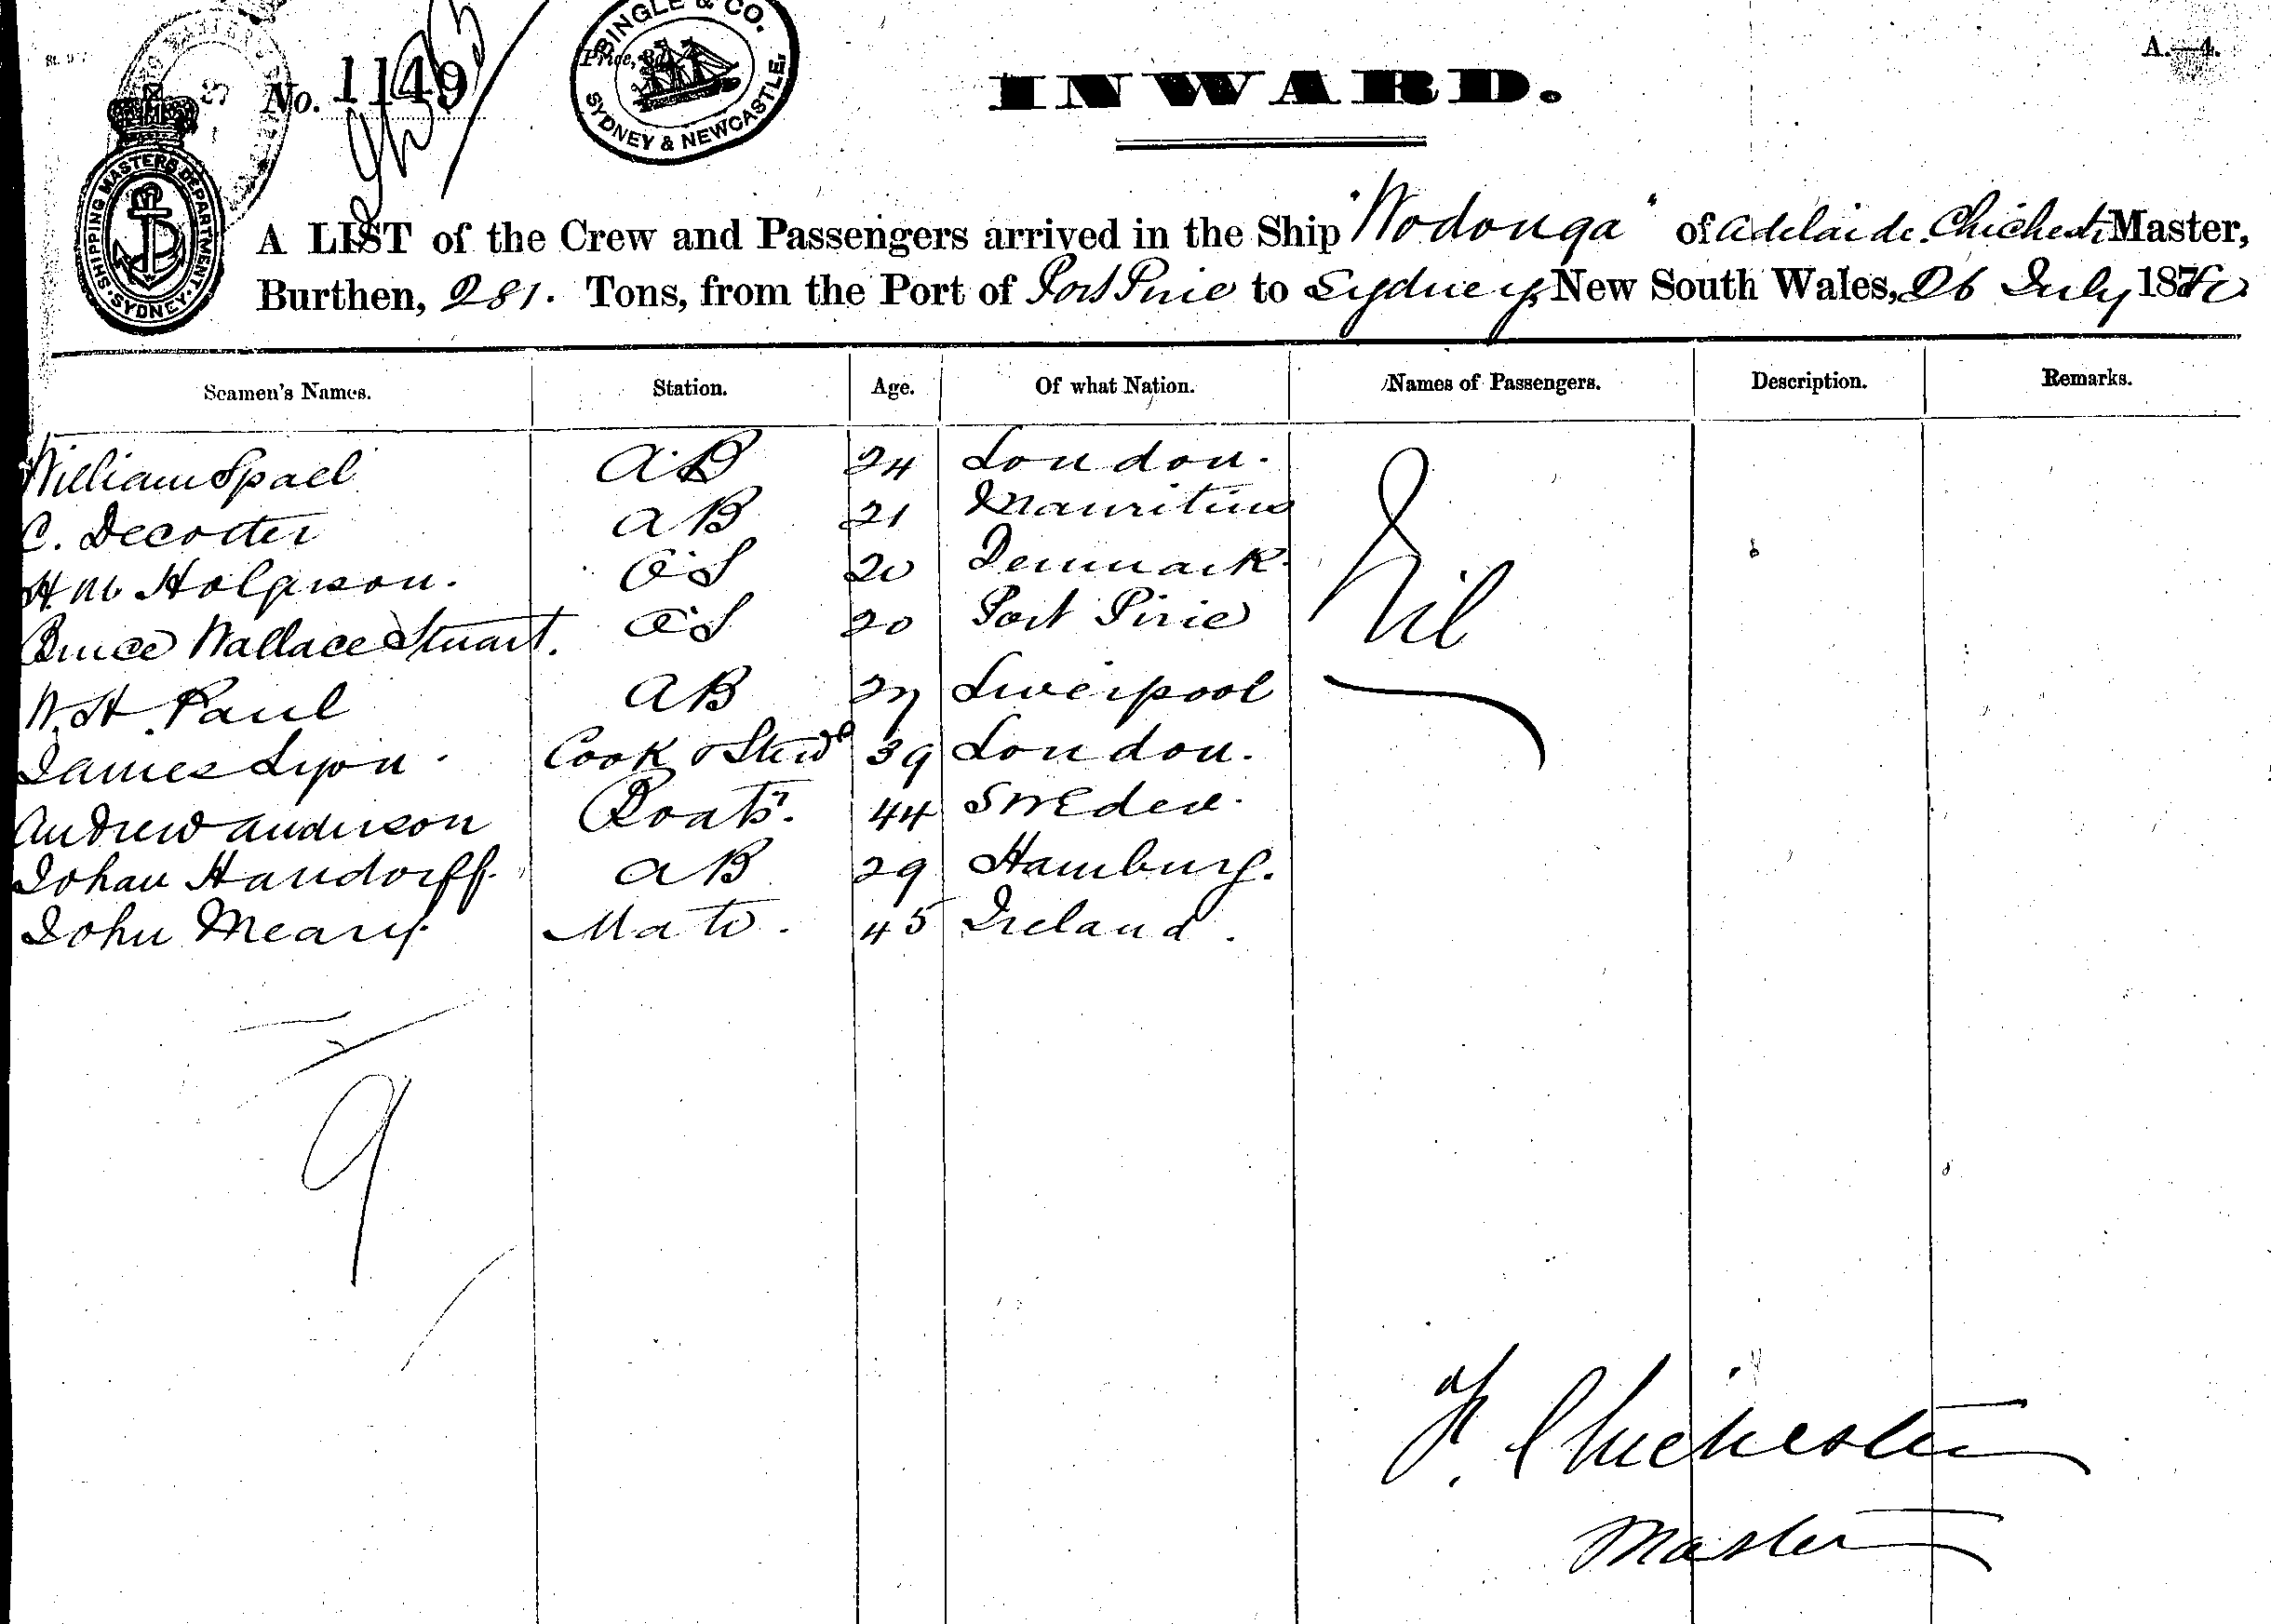 BINGLE & CO.
SYDNEY & NEWCASTLE
No. 1149
INWARD.
A.—4.
SHIPPING MASTERS DEPARTMENT
SYDNEY
A LIST of the Crew and Passengers arrived in the Ship "Wodonga" of Adelaide. Chichester Master,
Burthen, 281. Tons, from the Port of Port Pirie to Sydney, New South Wales, 26 July 1880
Seamen's Names. Station. Age. Of what Nation. Names of Passengers. Description. Remarks.
William AB 24 London. Nil
C. Decotter AB 21 Mauritius
H. M. Holgerson. OS 20 Denmark.
Bruce Wallace Stuart. OS 20 Port Pirie
W. H. Paul AB 27 Liverpool
James Lyon. Cook & Stewd 39 London.
Andrew Anderson Boatsn. 44 Sweden.
Johan Handorff. AB 29 Hamburg.
John Meany. Mate. 45 Ireland.
9
F. Chichester
Master